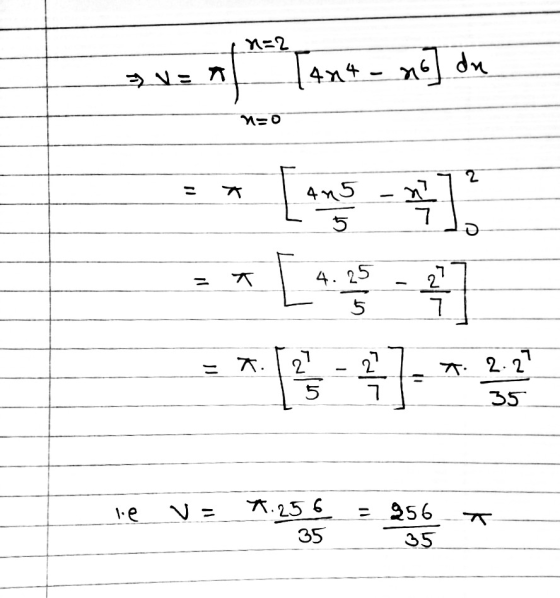 ⇒ V = π ∫_{x=0}^{x=2} [4x⁴ - x⁶] dx
= π [4x⁵/5 - x⁷/7]₀²
= π [4·2⁵/5 - 2⁷/7]
= π·[2⁷/5 - 2⁷/7] = π· 2·2⁷/35
i.e V = π·256/35 = 256/35 π